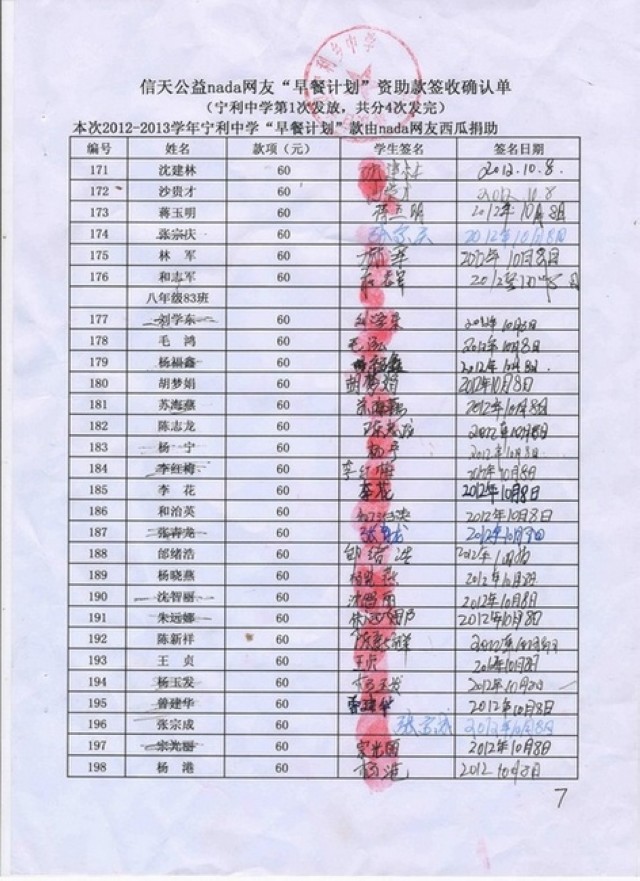 信天公益nada网友“早餐计划”资助款签收确认单
(宁利中学第1次发放，共分4次发完)
本次2012-2013学年宁利中学“早餐计划”款由nada网友西瓜捐助
编号 姓名 款项（元） 学生签名 签名日期
171 沈建林 60 2012.10.8
172 沙贵才 60 2012.10.8
173 蒋玉明 60 蒋玉明 2012年10月8日
174 张宗庆 60 张宗庆 2012年10月8日
175 林军 60 林军 2012年10月8日
176 和志军 60
八年级83班
177 刘学东 60 刘学东 2012年10月8日
178 毛鸿 60 毛鸿 2012年10月8日
179 杨福鑫 60 杨福鑫 2012年10月8日
180 胡梦娟 60 胡梦娟 2012年10月8日
181 苏海燕 60 2012年10月8日
182 陈志龙 60 陈志龙 2012年10月8日
183 杨宁 60 杨宁 2012年10月8日
184 李红梅 60 李红梅 2012年10月8日
185 李花 60 李花 2012年10月8日
186 和治英 60 2012年10月8日
187 张青龙 60 2012年10月8日
188 邰绪浩 60 邰绪浩 2012年
189 杨晓燕 60 杨晓燕 2012年10月8日
190 沈智丽 60 2012年10月8日
191 朱远娜 60 2012年10月8日
192 陈新祥 60
193 王贞 60 王贞 2012年10月8日
194 杨玉发 60 杨玉发 2012年10月8日
195 曾建华 60 曾建华 2012年10月8日
196 张宗成 60 张宗成 2012年10月8日
197 宗光丽 60 2012年10月8日
198 杨港 60 杨港 2012 10月8日
7